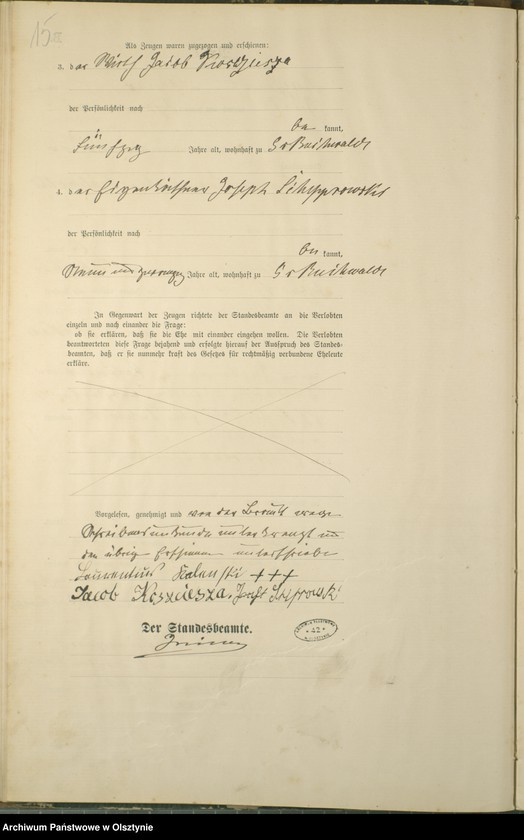 Als Zeugen waren zugezogen und erschienen:
3. der Wirth Jacob Koszciesza
der Persönlichkeit nach
be kannt,
fünfzig Jahre alt, wohnhaft zu Gr Buchwalde
4. der Eigenkäthner Joseph
der Persönlichkeit nach
be kannt,
neun und zwanzig Jahre alt, wohnhaft zu Gr Buchwalde
In Gegenwart der Zeugen richtete der Standesbeamte an die Verlobten
einzeln und nach einander die Frage:
ob sie erklären, daß sie die Ehe mit einander eingehen wollen. Die Verlobten
beantworteten diese Frage bejahend und erfolgte hierauf der Ausspruch des Standes-
beamten, daß er sie nunmehr kraft des Gesetzes für rechtmäßig verbundene Eheleute
erkläre.
Vorgelesen, genehmigt und von der Braut wegen
Schreibensunkunde unterkreuzt von
den übrigen Erschienenen unterschrieben
Laurentius +++
Jacob Koszciesza.
Der Standesbeamte.
42
Archiwum Państwowe w Olsztynie